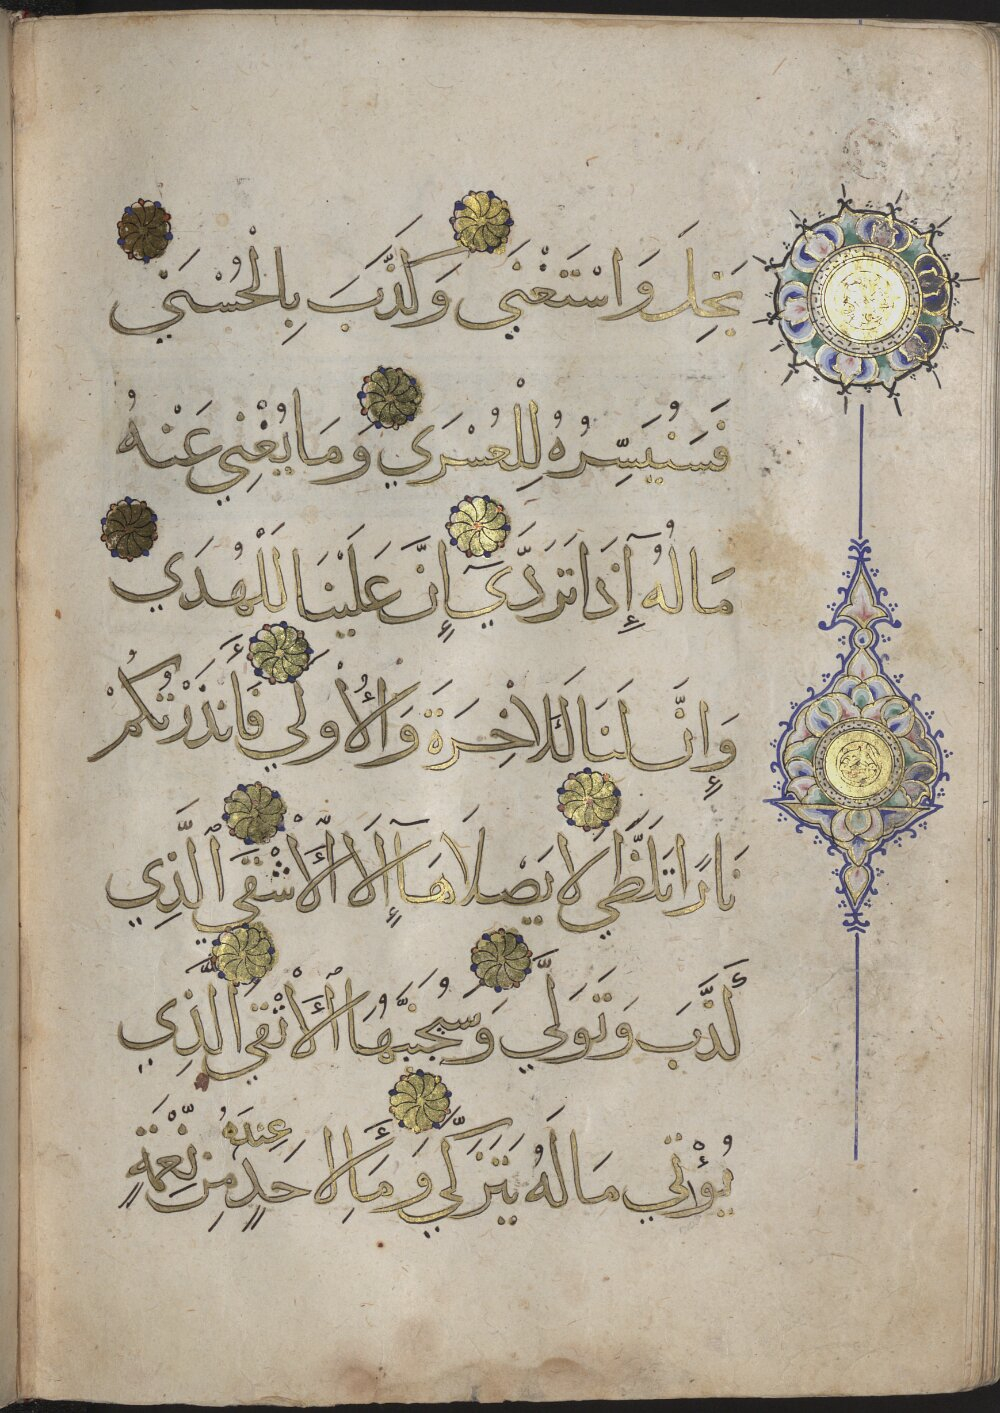 بَخِلَ وَاسْتَغْنَي وَكَذَّبَ بِالْحُسْنَي
فَسَنُيَسِّرُهُ لِلْعُسْرَي وَمَا يُغْنِي عَنْهُ
مَالُهُ إِذَا تَرَدَّيٓ إِنَّ عَلَيْنَا لَلْهُدَي
وَإِنَّ لَنَا لَلْأَخِرَةَ وَالْأُوْلَي فَأَنذَرْتُكُمْ
نَارًا تَلَظَّي لَا يَصْلَاهَآ إِلَّا الْأَشْقَي الَّذِي
كَذَّبَ وَتَوَلَّي وَسَيُجَنَّبُهَا الْأَتْقَي الَّذِي
يُؤْتِي مَالَهُ يَتَزَكَّي وَمَا لِأَحَدٍ عِندَهُ مِن نِّعْمَةٍ